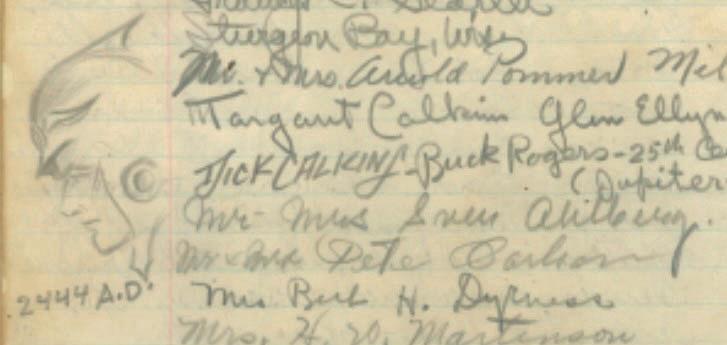 Sturgeon Bay, Wis
Mr. & Mrs. Arnold Pommer Mil
Margaret Calkins Glen Ellyn
DICK CALKINS - Buck Rogers - 25th Ce
(Jupiter
Mr - Mrs Sven
Mr & Mrs Pete Carlson
2444 A.D.
Mrs Bert H. Dyrness
Mrs. H. W. Martinson